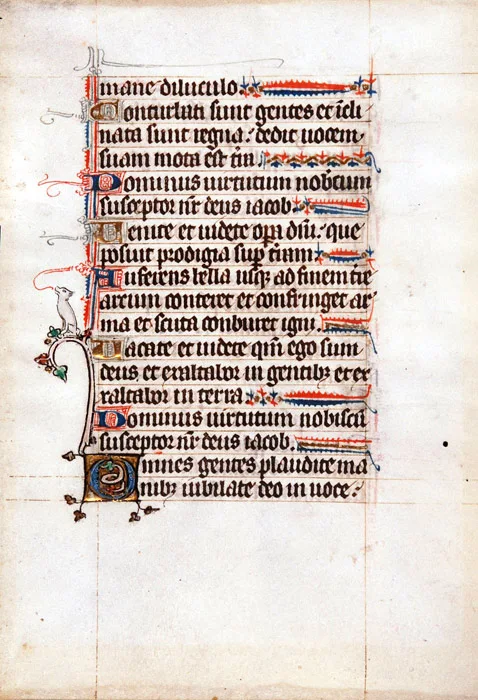 mane diluculo
Conturbati sunt gentes et icli
nata sunt regna: dedit uocem
suam mota est tra
Dominus uirtutum nobiscum
susceptor nr deus iacob.
Uenite et uidete opa dni: que
posuit prodigia sup tram
Auferens bella usq; ad finem tre
arcum conteret et confringet ar
ma et scuta conburet igni.
Uacate et uidete qm ego sum
deus et exaltabor in gentibz et ex
altabor in terra.
Dominus uirtutum nobiscu
susceptor nr deus iacob.
Omnes gentes plaudite ma
nibz iubilate deo in uoce: